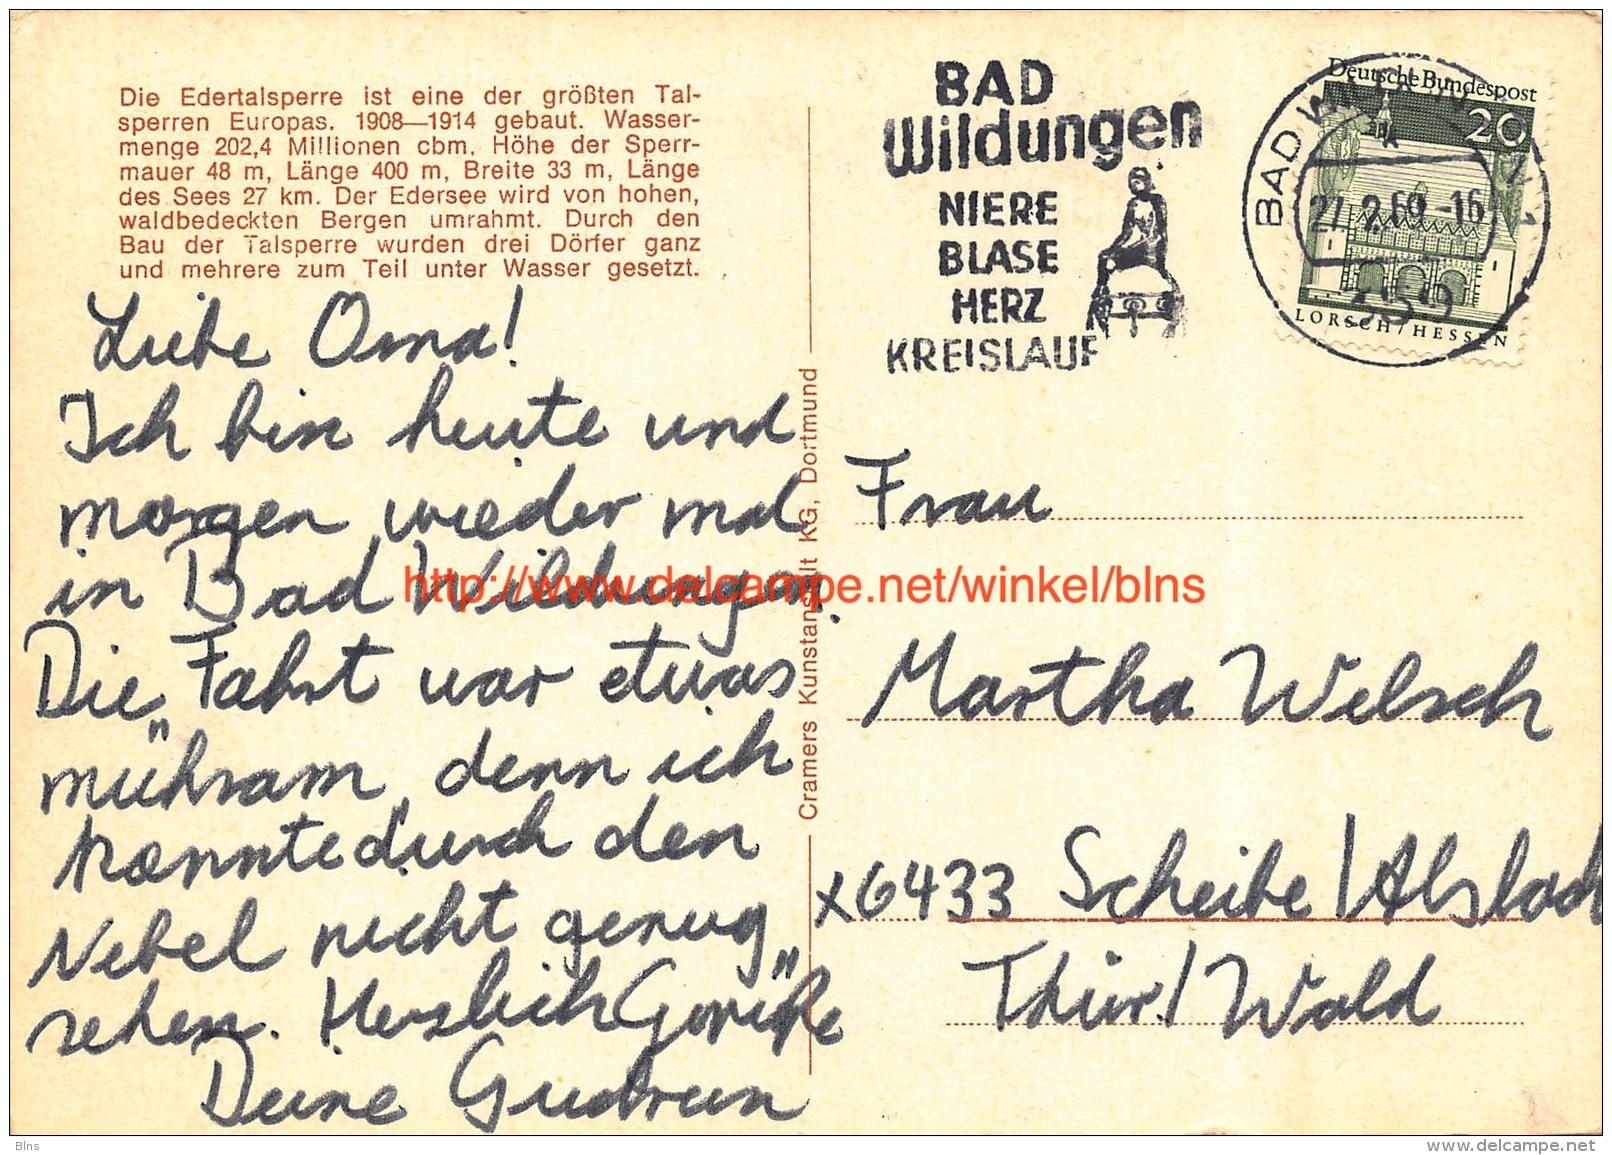 Die Edertalsperre ist eine der größten Tal-
sperren Europas. 1908—1914 gebaut. Wasser-
menge 202,4 Millionen cbm. Höhe der Sperr-
mauer 48 m, Länge 400 m, Breite 33 m, Länge
des Sees 27 km. Der Edersee wird von hohen,
waldbedeckten Bergen umrahmt. Durch den
Bau der Talsperre wurden drei Dörfer ganz
und mehrere zum Teil unter Wasser gesetzt.
Liebe Oma!
Ich bin heute und
morgen wieder mal
in Bad Wildungen.
Die Fahrt war etwas
mühsam, denn ich
konnte durch den
Nebel nicht genug
sehen. Herzlich Grüße
Deine Gudrun
Cramers Kunstanstalt KG, Dortmund
BAD
Wildungen
NIERE
BLASE
HERZ
KREISLAUF
BAD
69-16
Deutsche Bundespost
20
LORSCH/HESSEN
Frau
Martha Welsch
x6433 Scheibe/Alsbach
Thür/Wald
http://www.delcampe.net/winkel/blns
Blns
www.delcampe.net